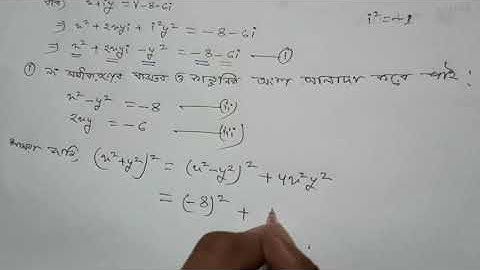 x+iy = √-8-6i
i² = -1
⇒ x² + 2xyi + i²y² = -8-6i
⇒ x² + 2xyi - y² = -8-6i ——(i)
(i) নং সমীকরণের বাস্তব ও কাল্পনিক অংশ আলাদা করে পাই:
x²-y² = -8 ——(ii)
2xy = -6 ——(iii)
আমরা জানি, (x²+y²)² = (x²-y²)² + 4x²y²
= (-8)² +